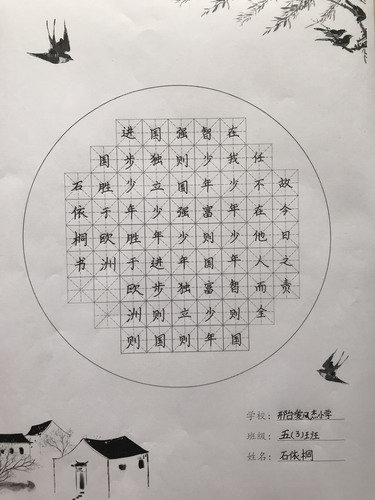 故今日之责
任不在他人而全
在我少年少年智则国
智少年富则国富少年
强则国强少年独立则
国独立少年进步则国
进步少年胜于欧洲则
国胜于欧洲
石依桐书
学校：邢台小学
班级：五(3)班
姓名：石依桐